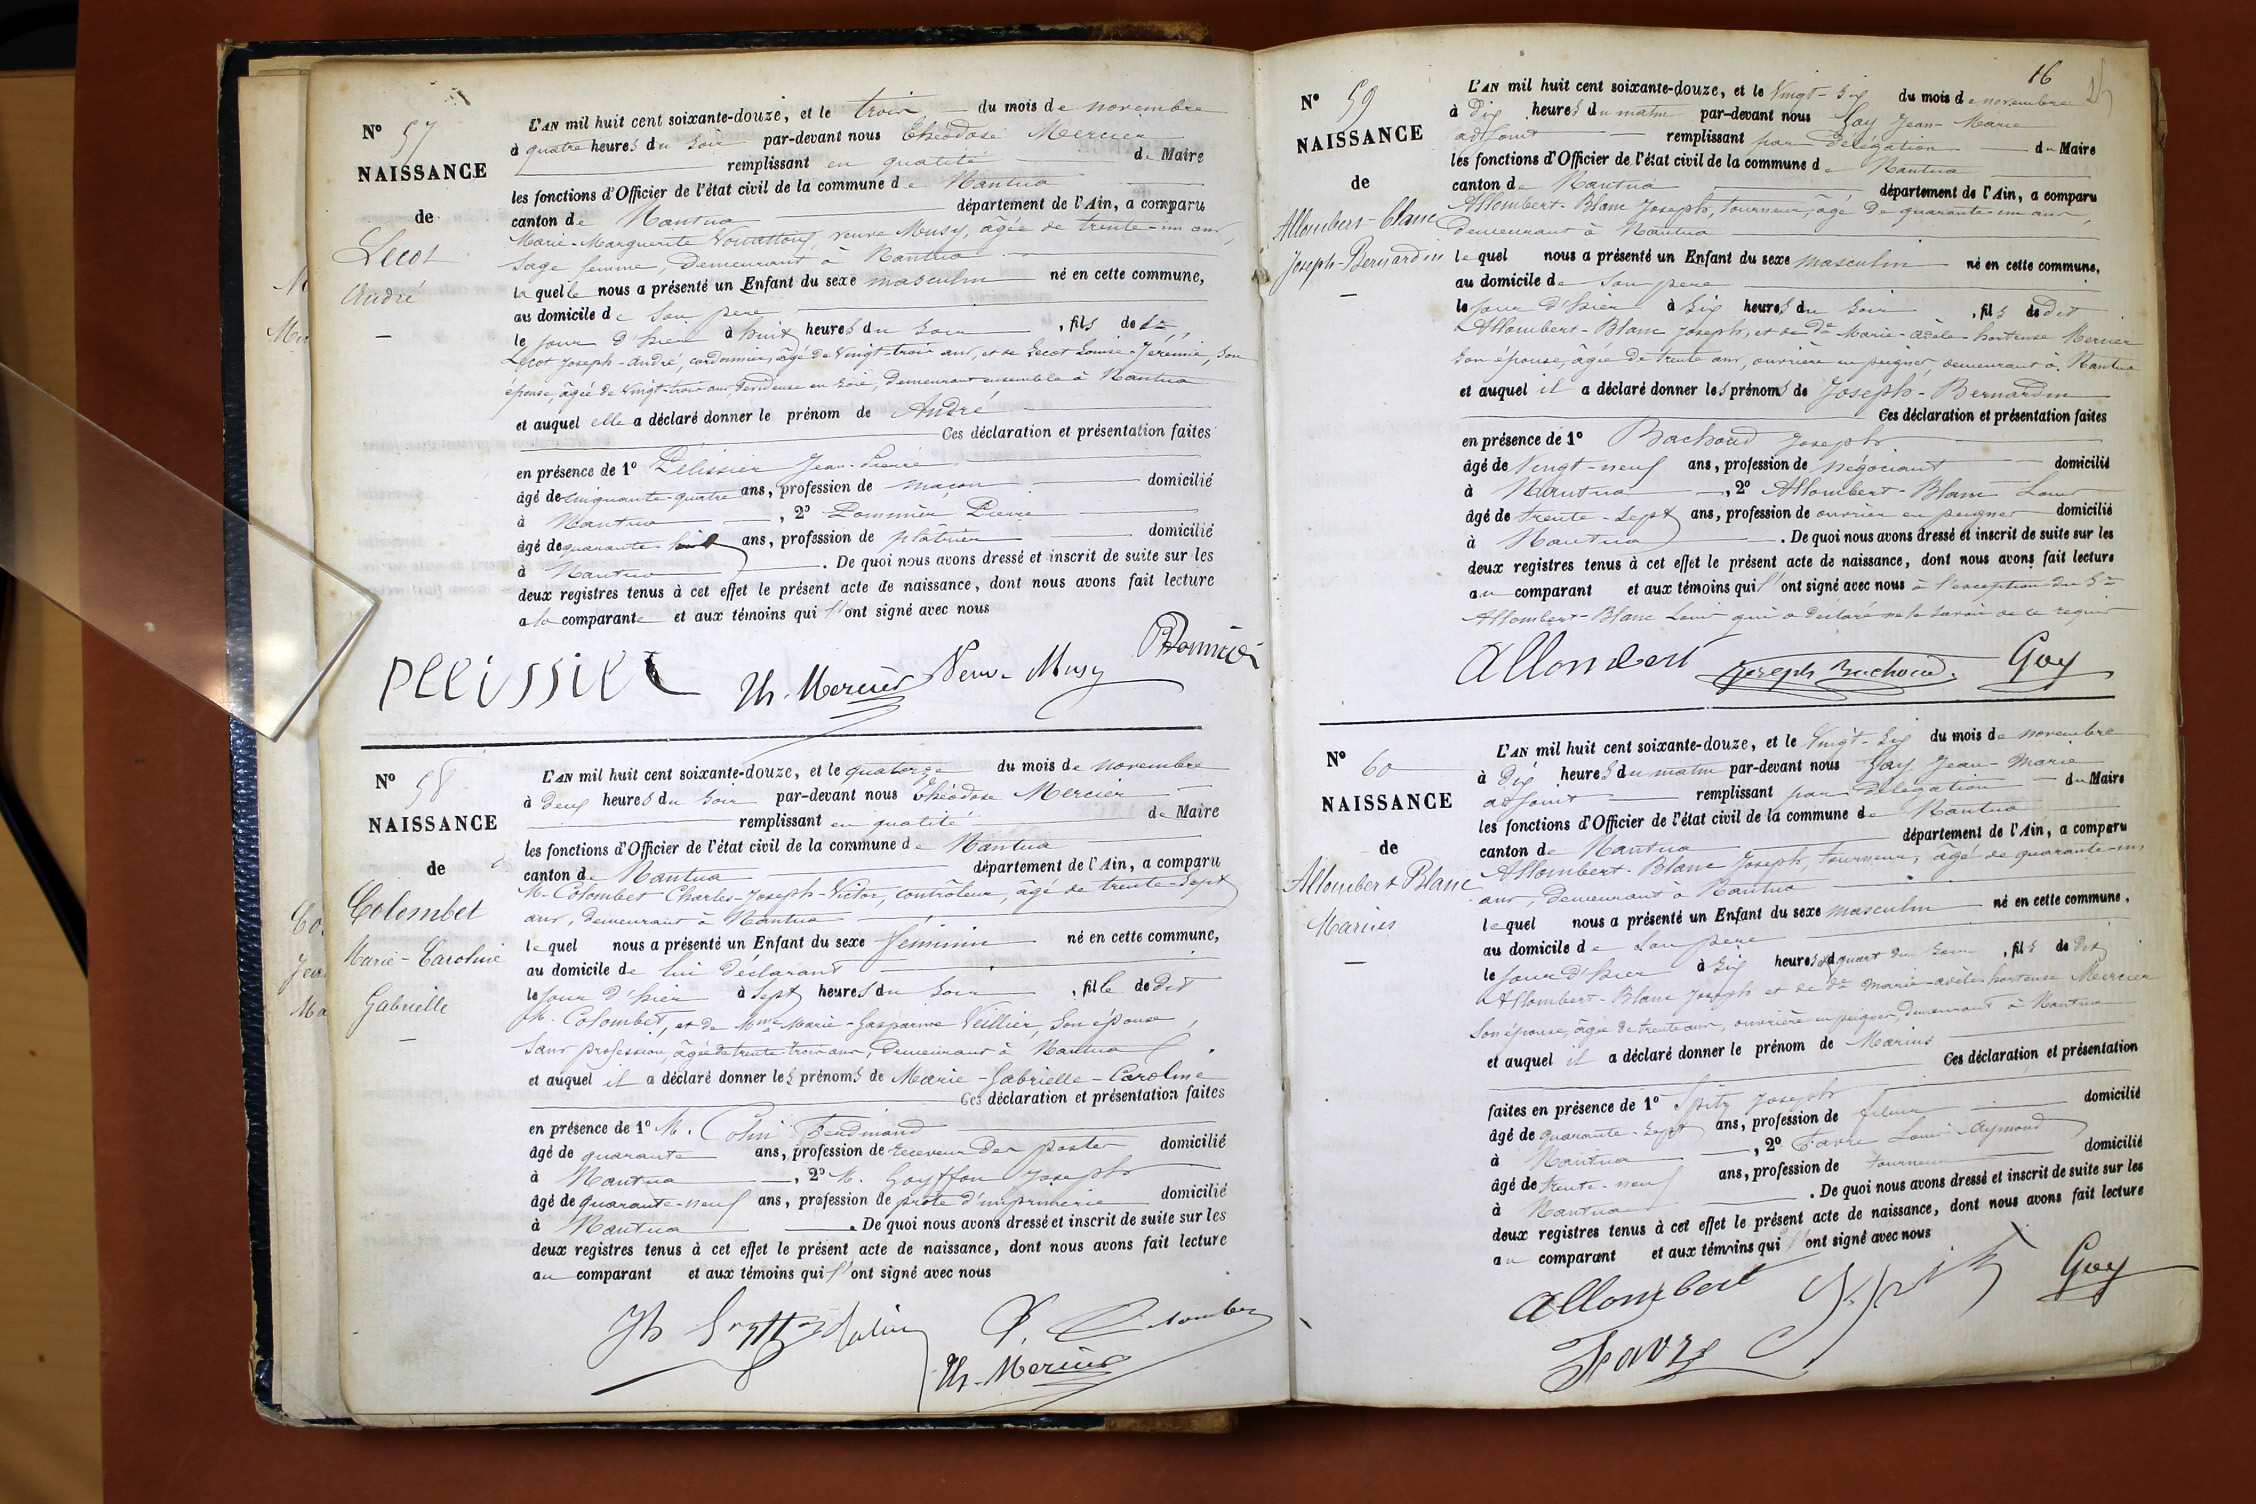 N° 57
NAISSANCE
de
Lecot
André
L'AN mil huit cent soixante-douze, et le trois du mois de novembre
à quatre heures du soir par-devant nous Théodose Mercier
remplissant en qualité de Maire
les fonctions d'Officier de l'état civil de la commune de Nantua
canton de Nantua département de l'Ain, a comparu
Marie-Marguerite veuve Musy, âgée de trente-un ans,
Sage femme, demeurant à Nantua
laquelle nous a présenté un Enfant du sexe masculin né en cette commune,
au domicile de son père
le jour d'hier à huit heures du soir, fils de Sr
Lecot Joseph-André, cordonnier, âgé de Vingt-trois ans, et de Lecot Louise-Jérémie, son
épouse, âgée de Vingt-trois ans, en soie, demeurant ensemble à Nantua
et auquel elle a déclaré donner le prénom de André
Ces déclaration et présentation faites
en présence de 1° Pélissier Jean-Pierre
âgé de cinquante-quatre ans, profession de maçon domicilié
à Nantua, 2° Pierre
âgé de quarante huit ans, profession de plâtrier domicilié
à Nantua. De quoi nous avons dressé et inscrit de suite sur les
deux registres tenus à cet effet le présent acte de naissance, dont nous avons fait lecture
a la comparante et aux témoins qui l'ont signé avec nous
pelissier Th. Mercier Veuve Musy
N° 58
NAISSANCE
de
Colombet
Marie-Caroline
Gabrielle
L'AN mil huit cent soixante-douze, et le quatorze du mois de novembre
à deux heures du soir par-devant nous Théodose Mercier
remplissant en qualité de Maire
les fonctions d'Officier de l'état civil de la commune de Nantua
canton de Nantua département de l'Ain, a comparu
M. Colombet Charles-Joseph-Victor, contrôleur, âgé de trente-sept
ans, demeurant à Nantua
lequel nous a présenté un Enfant du sexe féminin né en cette commune,
au domicile de lui déclarant
le jour d'hier à sept heures du soir, fille de dit
M. Colombet, et de Mme Marie-Gasparine Veillier, son épouse,
sans profession, âgée de trente trois ans, demeurant à Nantua
et auquel il a déclaré donner les prénoms de Marie-Gabrielle-Caroline
Ces déclaration et présentation faites
en présence de 1° M. Colin Ferdinand
âgé de quarante ans, profession de receveur des postes domicilié
à Nantua, 2° M. Goyffon Joseph
âgé de quarante-neuf ans, profession de prote d'imprimerie domicilié
à Nantua. De quoi nous avons dressé et inscrit de suite sur les
deux registres tenus à cet effet le présent acte de naissance, dont nous avons fait lecture
au comparant et aux témoins qui l'ont signé avec nous
Colombet
Th. Mercier
16
N° 59
NAISSANCE
de
Allombert-Blanc
Joseph-Bernardin
L'AN mil huit cent soixante-douze, et le Vingt-six du mois de novembre
à dix heures du matin par-devant nous Gay Jean-Marie
adjoint remplissant par délégation du Maire
les fonctions d'Officier de l'état civil de la commune de Nantua
canton de Nantua département de l'Ain, a comparu
Allombert-Blanc Joseph, tourneur, âgé de quarante-un ans,
demeurant à Nantua
lequel nous a présenté un Enfant du sexe masculin né en cette commune,
au domicile de son père
le jour d'hier à six heures du soir, fils de dit
Allombert-Blanc Joseph, et de de Marie-Adèle hortense Mercier
son épouse, âgée de trente ans, ouvrière en peignes, demeurant à Nantua
et auquel il a déclaré donner les prénoms de Joseph-Bernardin
Ces déclaration et présentation faites
en présence de 1° Bachoud Joseph
âgé de Vingt-neuf ans, profession de négociant domicilié
à Nantua, 2° Allombert-Blanc Louis
âgé de trente-sept ans, profession de ouvrier en peignes domicilié
à Nantua. De quoi nous avons dressé et inscrit de suite sur les
deux registres tenus à cet effet le présent acte de naissance, dont nous avons fait lecture
au comparant et aux témoins qui l'ont signé avec nous à l'exception du Sr
Allombert-Blanc Louis qui a déclaré ne le savoir de ce requis
Allombert Joseph Bachoud Gay
N° 60
NAISSANCE
de
Allombert Blanc
Marius
L'AN mil huit cent soixante-douze, et le Vingt-six du mois de novembre
à dix heures du matin par-devant nous Gay Jean-Marie
adjoint remplissant par délégation du Maire
les fonctions d'Officier de l'état civil de la commune de Nantua
canton de Nantua département de l'Ain, a comparu
Allombert-Blanc Joseph, tourneur, âgé de quarante-un
ans, demeurant à Nantua
lequel nous a présenté un Enfant du sexe masculin né en cette commune,
au domicile de son père
le jour d'hier à six heures et quart du soir, fils de dit
Allombert-Blanc Joseph et de de Marie-adèle hortense Mercier
son épouse, âgée de trente ans, ouvrière en peignes, demeurant à Nantua
et auquel il a déclaré donner le prénom de Marius
Ces déclaration et présentation
faites en présence de 1° Spitz Joseph domicilié
âgé de quarante-sept ans, profession de fileur
à Nantua, 2° Favre Louis-Aymond domicilié
âgé de trente-neuf ans, profession de tourneur
à Nantua. De quoi nous avons dressé et inscrit de suite sur les
deux registres tenus à cet effet le présent acte de naissance, dont nous avons fait lecture
au comparant et aux témoins qui ont signé avec nous
allombert Spitz Gay
Favre